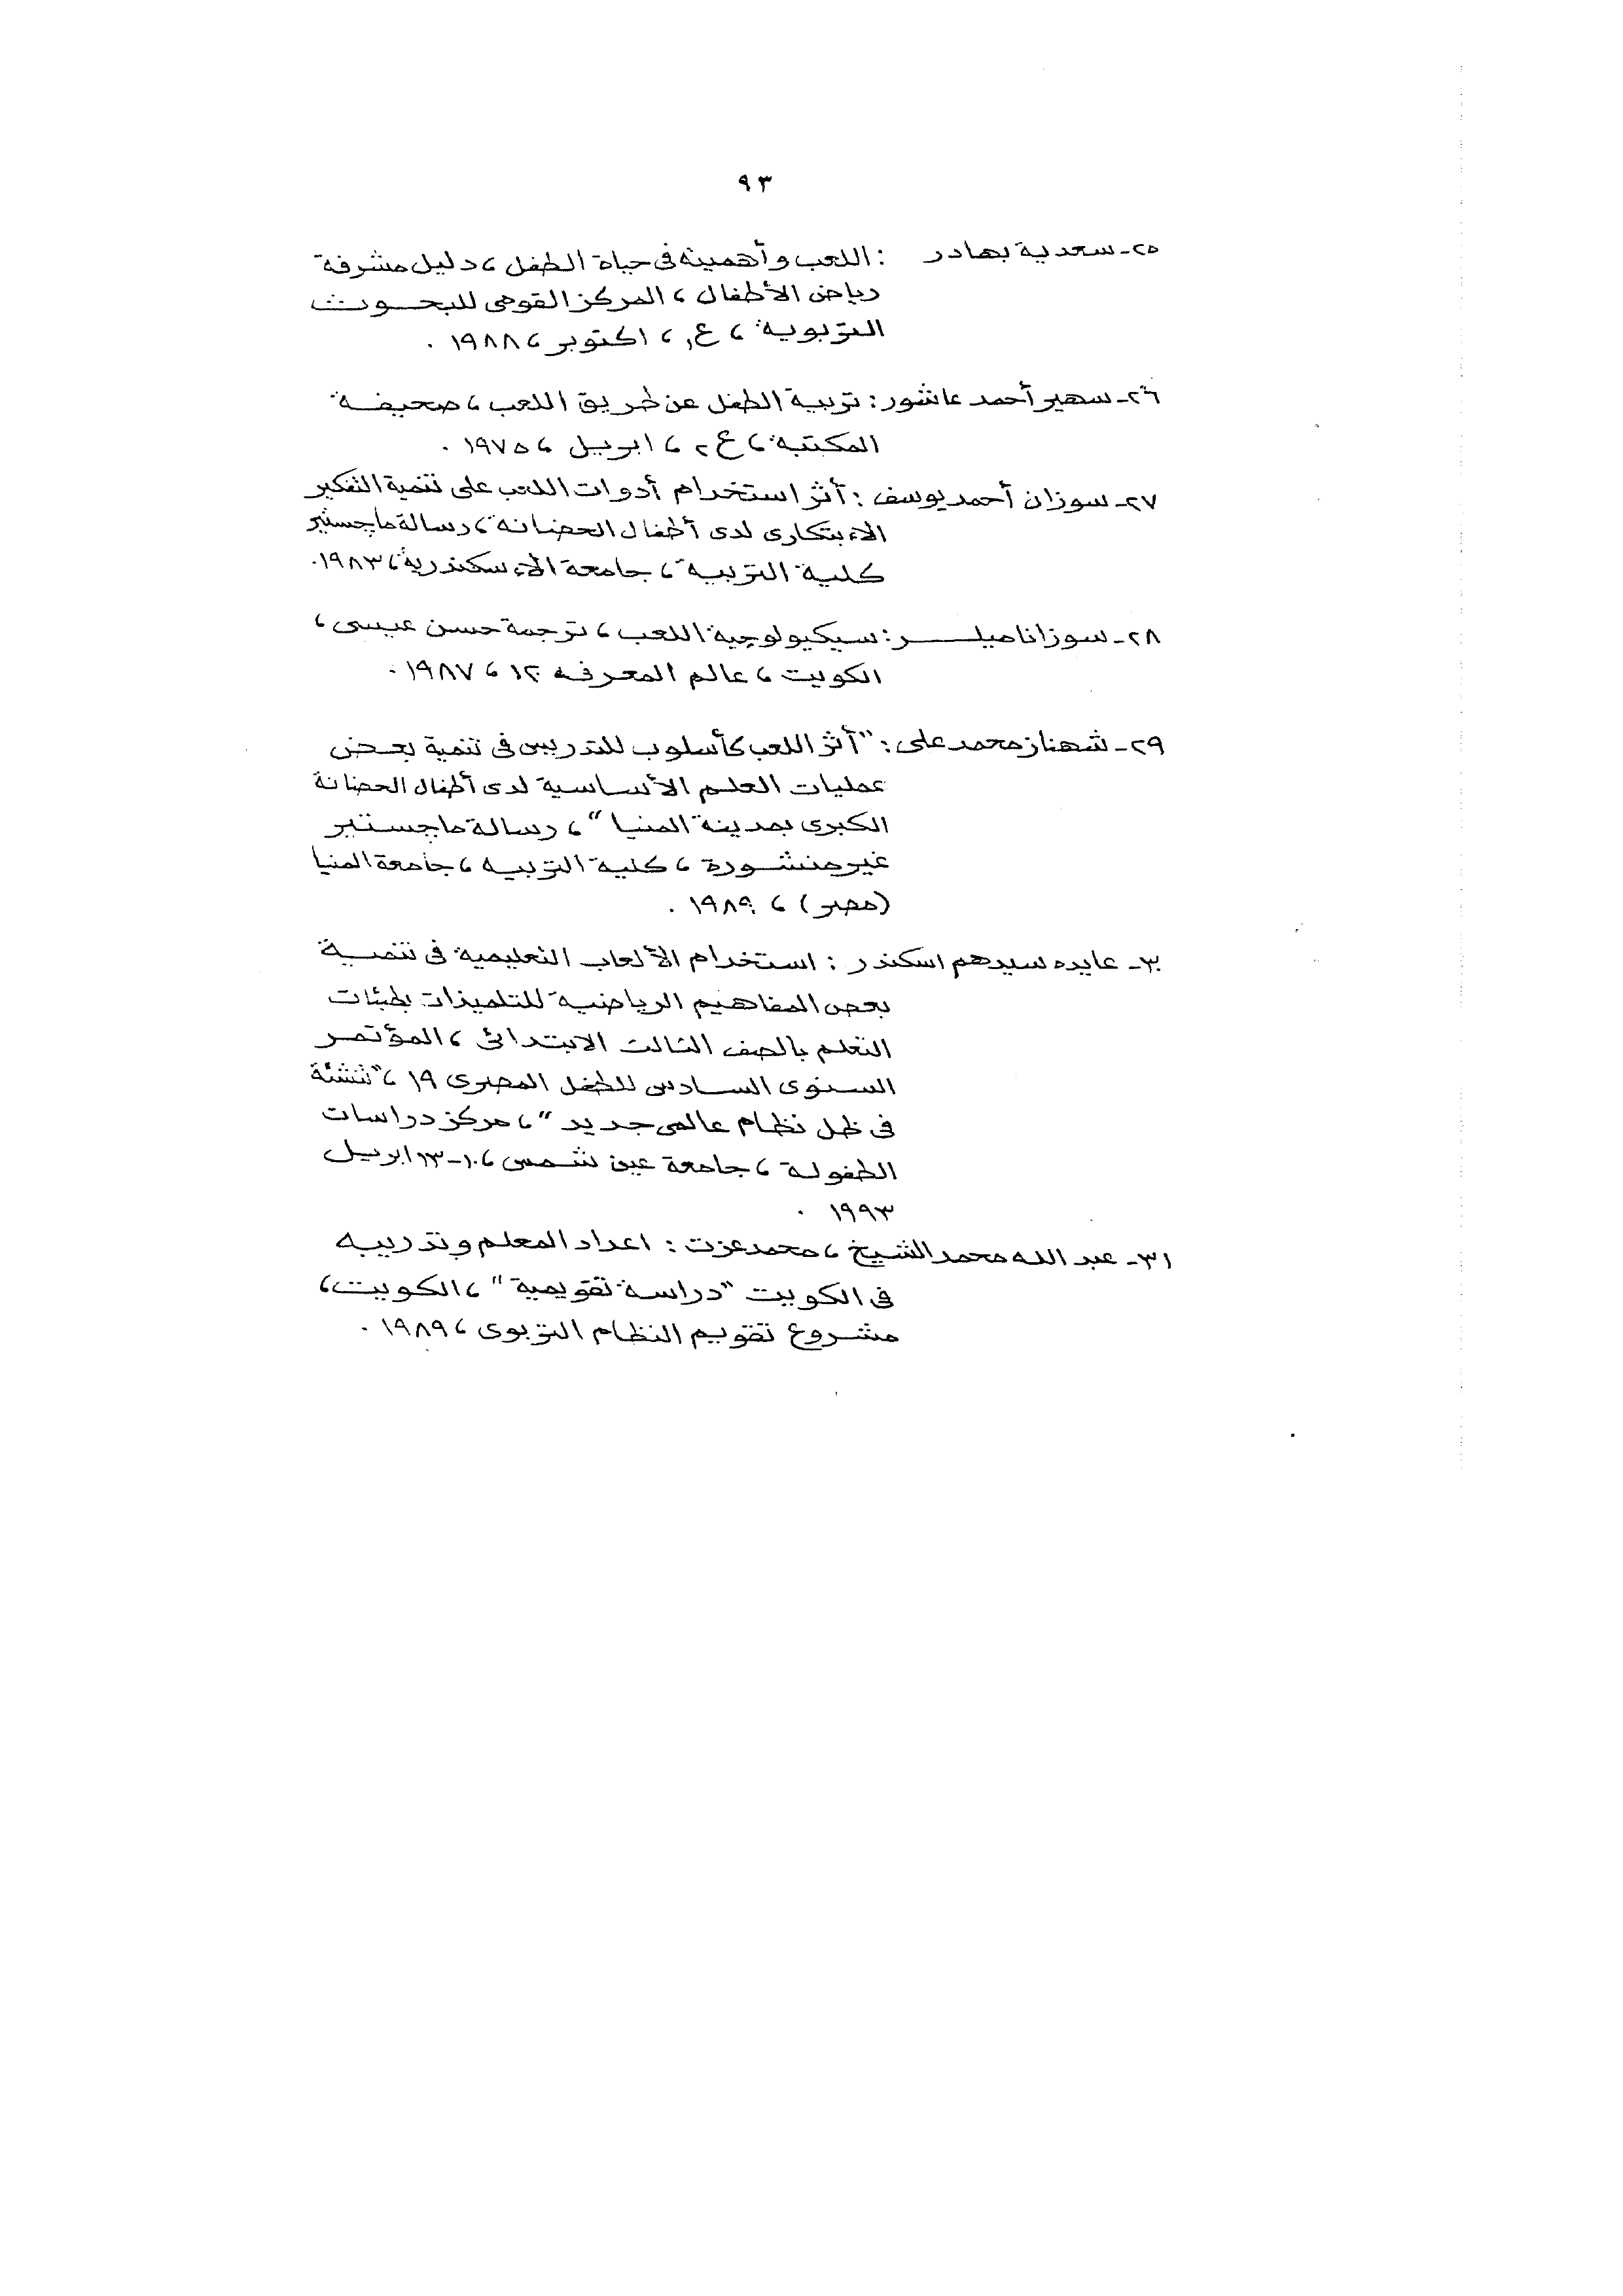 ٩٣
٢٥- سعدية بهادر : اللعب وأهميته فى حياة الطفل ، دليل مشرفة
رياض الأطفال ، المركز القومى للبحوث
التربوية ، ع١ ، اكتوبر ، ١٩٨٨ .
٢٦- سهير أحمد عاشور : تربية الطفل عن طريق اللعب ، صحيفة
المكتبة ، ع ٢ ، ابريل ، ١٩٧٥ .
٢٧- سوزان أحمد يوسف : أثر استخدام أدوات اللعب على تنمية التفكير
الاءبتكارى لدى أطفال الحضانة ، رسالة ماجستير
كلية التربية ، جامعة الاءسكندرية ، ١٩٨٣ .
٢٨- سوزانا ميلر : سيكيولوچية اللعب ، ترجمة حسن عيسى ،
الكويت ، عالم المعرفه ١٢٠ ، ١٩٨٧ .
٢٩- شهناز محمد على : "أثر اللعب كأسلوب للتدريس فى تنمية بعض
عمليات العلم الأساسية لدى أطفال الحضانة
الكبرى بمدينة المنيا" ، رسالة ماجستير
غير منشورة ، كلية التربيه ، جامعة المنيا
(مصر) ، ١٩٨٩ .
٣٠- عايده سيدهم اسكندر : استخدام الألعاب التعليمية فى تنمية
بعض المفاهيم الرياضية للتلميذات بطيئات
التعلم بالصف الثالث الابتدائى ، المؤتمر
السنوى السادس للطفل المصرى ١٩ ، "تنشئة
فى ظل نظام عالمى جديد" ، مركز دراسات
الطفولة ، جامعة عين شمس ، ١٠-١٣ ابريل
١٩٩٣ .
٣١- عبد الله محمد الشيخ ، محمد عزت : اعداد المعلم وتدريبه
فى الكويت "دراسة تقويمية" ، الكويت ،
مشروع تقويم النظام التربوى ، ١٩٨٩ .